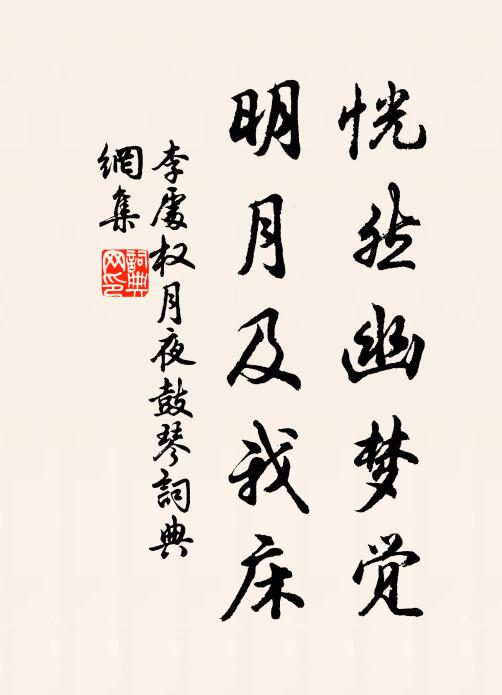 恍然幽梦觉
明月及我床
李处权月夜鼓琴詞典
網集
詞典网印